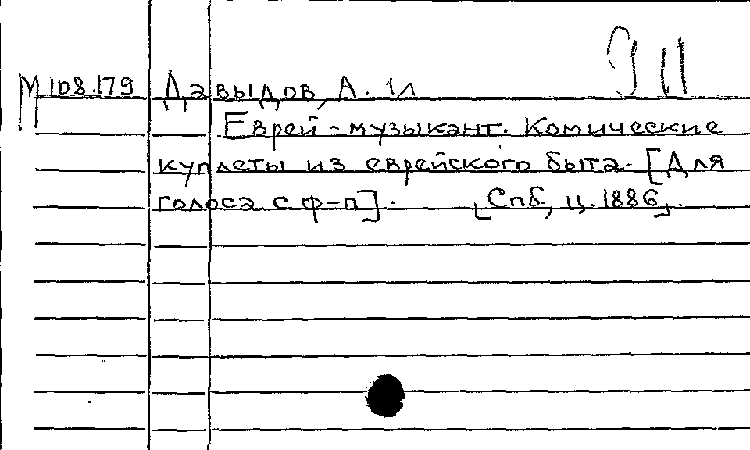 М 108.179 Давыдов, А.
Еврей-музыкант. Комические
куплеты из еврейского быта. [Для
голоса с ф-п]. [Спб, ц. 1886].